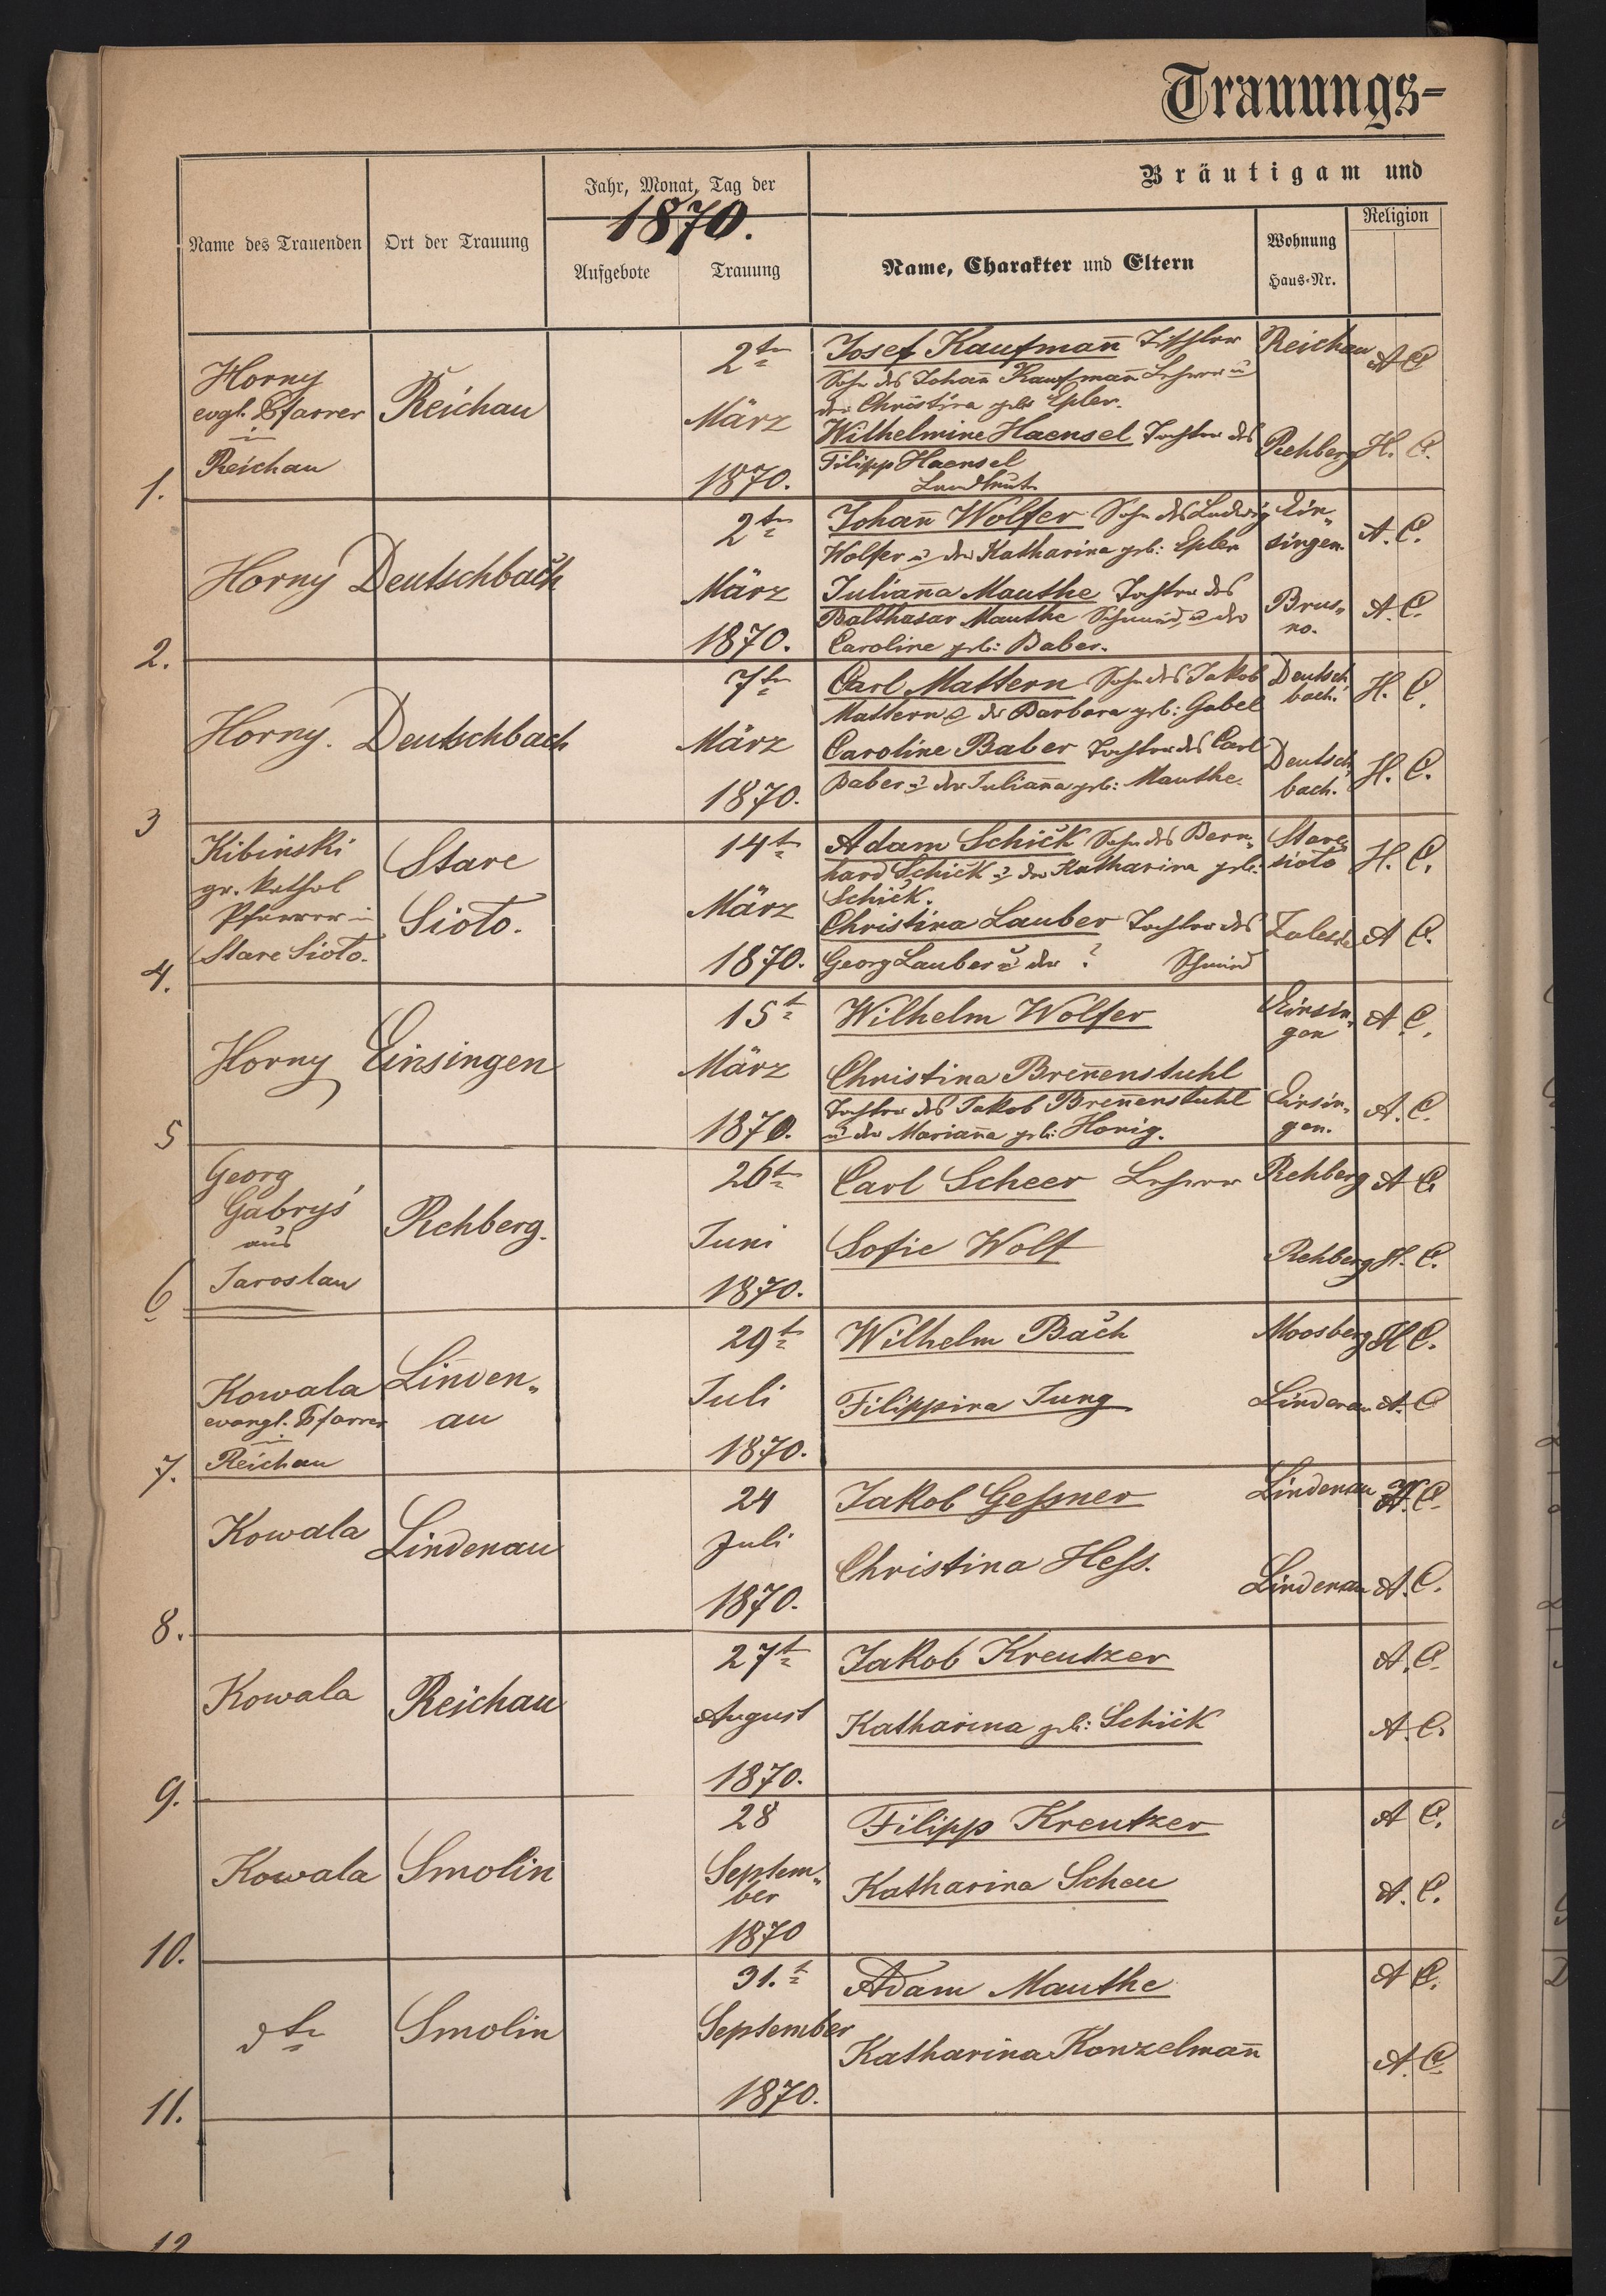 Trauungs-
Jahr, Monat, Tag der
Bräutigam und
1870.
Name des Trauenden
Ort der Trauung
Aufgebote
Trauung
Name, Charakter und Eltern
Wohnung
Haus-Nr.
Religion
1.
Horny
evgl. Pfarrer
in
Reichau
Reichau
2tn
März
1870.
Josef Kaufmann̄ Tischler
Sohn des Johan̄ Kaufman̄ Lehrer u
der Christina geb Epler.
Wilhelmine Haensel Tochter des
Filipp Haensel
Landwirt
Reichau
A C
Rehberg
H. C.
2.
Horny
Deutschbach
2tn
März
1870.
Johan̄ Wolfer Sohn des Ludwig
Wolfer u der Katharina geb: Epler
Julian̄a Mauthe Tochter des
Balthasar Mauthe Schmied, u der
Caroline geb: Baber.
Ein„
singen.
A. C.
Brus„
no.
A. C.
3
Horny.
Deutschbach
7tn
März
1870.
Carl Mattern Sohn des Jakob
Mattern u der Barbara geb: Gabel
Caroline Baber Tochter des Carl
Baber u der Julian̄a geb: Mauthe.
Deutsch
bach.
H. C.
Deutsch
bach.
H. C.
4.
Kibinski
gr. kathol
Pfarrer in
Stare Sioto.
Stare
Sioto.
14tn
März
1870.
Adam Schick Sohn des Bern„
hard Schick u der Katharina geb:
Schick.
Christina Lauber Tochter des
Georg Lauber u der ? Schmied
Stare
sioto
H. C.
Zalesie
A C.
5
Horny
Einsingen
15t
März
1870.
Wilhelm Wolfer
Christina Bren̄enstuhl
Tochter des Jakob Bren̄enstuhl
u der Marian̄a geb: Honig.
Einsin„
gen
A. C.
Einsin„
gen.
A. C.
6
Georg
Gabryś
aus
Jaroslau
Rehberg.
26tn
Juni
1870.
Carl Scheer Lehrer
Sofie Wolf
Rehberg
A C.
Rehberg
H. C.
7.
Kowala
evangl. Pfarrer
in
Reichau
Linden„
au
29t
Juli
1870.
Wilhelm Bach
Filippina Jung
Moosberg
H C.
Lindenau
A. C
8.
Kowala
Lindenau
24
Juli
1870.
Jakob Geßner
Christina Heß.
Lindenau
H. C.
Lindenau
A. C.
9.
Kowala
Reichau
27t
August
1870.
Jakob Kreutzer
Katharina geb: Schick
A. C.
A. C.
10.
Kowala
Smolin
28
Septem„
ber
1870
Filipp Kreutzer
Katharina Schau
A C.
A. C.
11.
dto
Smolin
31.t
September
1870.
Adam Mauthe
Katharina Konzelman̄
A C.
A. C.
12